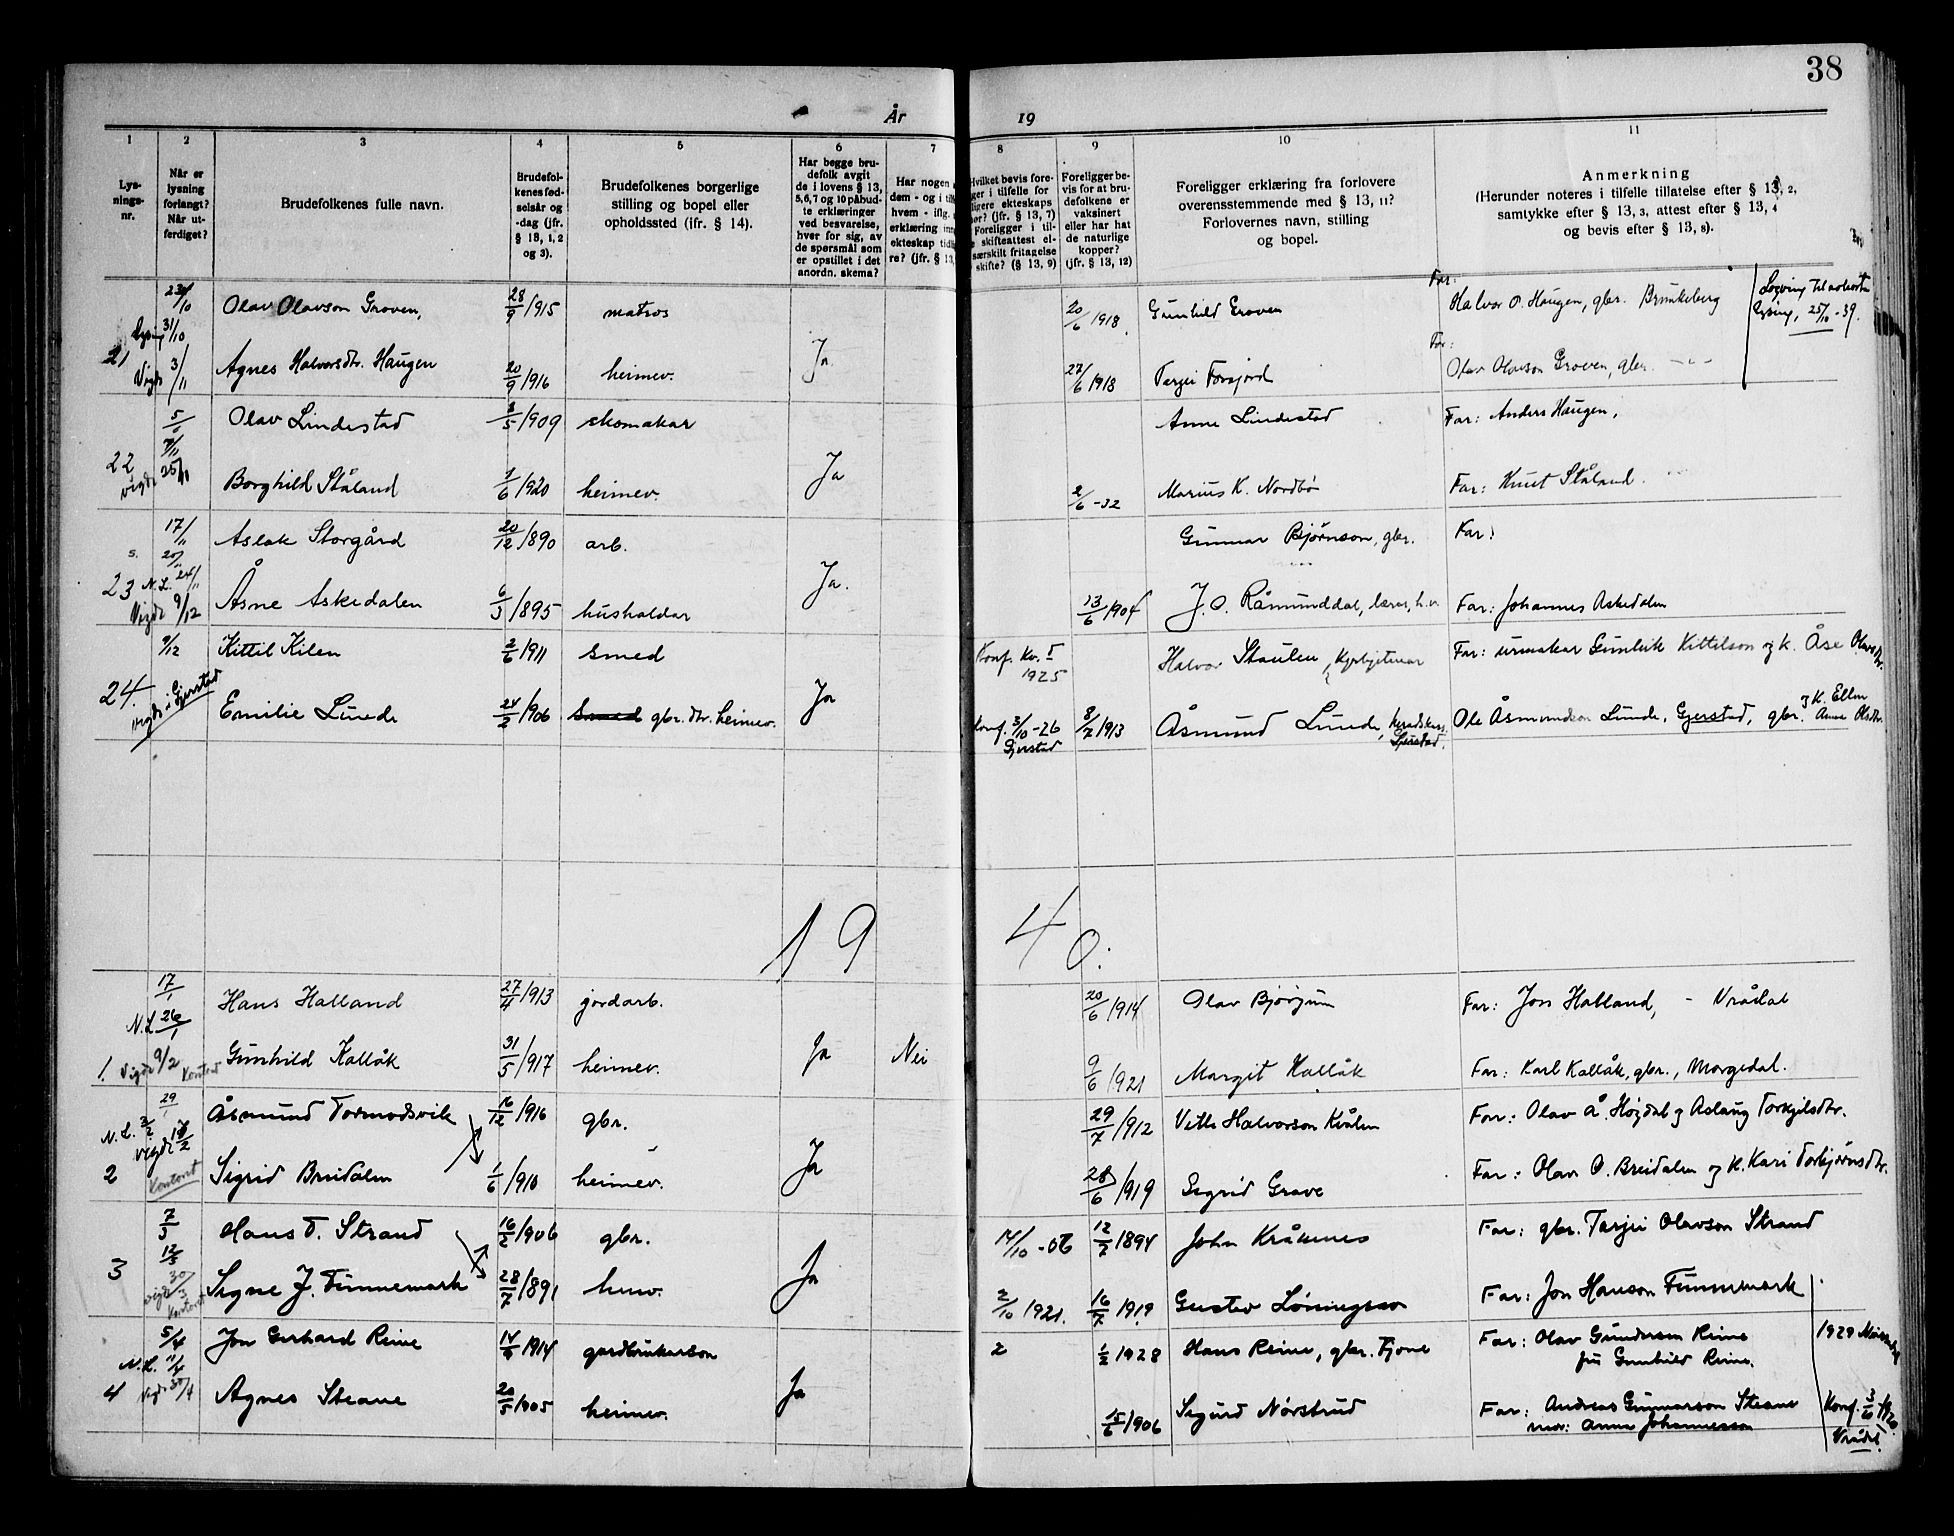 38
År
19
1
2
3
4
5
6
7
8
9
10
11
Lys-
nings-
nr.
Når er
lysning
forlangt?
Når ut-
ferdiget?
Brudefolkenes fulle navn.
Brudefol-
kenes fød-
selsår og
-dag (jfr.
§ 13, 1, 2
og 3).
Brudefolkenes borgerlige
stilling og bopel eller
opholdssted (jfr. § 14).
Har begge bru-
defolk avgit
de i lovens § 13,
5, 6, 7 og 10 påbud-
te erklæringer
ved besvarelse,
hver for sig, av
de spørsmål som
er opstillet i det
anordn. skema?
Har nogen
dem - og i til
hvem - iflg.
erklæring inn
ekteskap tid
re? (jfr. § 13,
Hvilket bevis fore-
ger i tilfelle for
ligere ekteskaps
hør? (jfr. § 13, 7)
Foreligger i til-
e skifteattest el-
særskilt fritagelse
skifte? (§ 13, 9)
Foreligger be-
vis for at bru-
defolkene er
vaksinert
eller har hat
de naturlige
kopper?
(jfr. § 13, 12)
Foreligger erklæring fra forlovere
overensstemmende med § 13, 11?
Forlovernes navn, stilling
og bopel.
Anmerkning
(Herunder noteres i tilfelle tillatelse efter § 13, 2,
samtykke efter § 13, 3, attest efter § 13, 4
og bevis efter § 13, 8).
23/10 Olav Olavson Groven, 28/9 1915 matros 20/6 1918 Gunhild Groven Far: Halvor O. Haugen, gbr. Brunkeberg
Lysing, 25/10-39.
21 Lysing 31/10 Vigde 3/11 Agnes Halvorsdtr. Haugen 20/9 1916 heimev. Ja 22/6 1918 Tarjei Forsjord Far: Olav Olavson Groven, gbr. -"-
5/ Olav Lindestad 3/5 1909 skomakar Anne Lindestad Far: Anders Haugen,
22 Vigde 25/11 Borghild Ståland 1/6 1920 heimev. Ja 2/6-32 Marius K. Nordbø Far: Knut Ståland.
17/11 Aslak Storgård 20/12 1890 arb. Gunnar Bjørnson, gbr. Far:
s. 20/11
23 N.L. 24/11 Vigde 9/12 Åsne Askedalen 6/3 1895 husholdar Ja. 13/6 1904 J. O. Råmunddal, lærar, Far: Johannes Askedalen
9/12 Kittil Kilen 2/6 1911 smed Konf. Kv. I 1925 Halvor Staulen, Kyrkjetenar Far: urmakar Gunleik Kittilson og k. Åse Olavsdtr.
24. Vigde i Gjerstad Emilie Lunde 24/2 1906 Smed gbr. dtr. heimev. Ja Konf. 3/10-26 Gjerstad 8/7 1913 Åsmund Lunde, Gjerstad. Ole Åsmundson Lunde, Gjerstad, gbr. og K. Ellen Anne Olsdtr.
19 40.
17/1 Hans Halland 27/4 1913 jordarb. 20/6 1914 Olav Bjørgum Far: Jon Halland, - Vrådal
N.L. 26/1
1. Vigde 9/2 Kontoret Gunhild Kallåk 31/5 1917 heimev. Ja Nei 9/6 1921 Margit Kallåk Far: Karl Kallåk, gbr., Morgedal.
29/1 Åsmund Tormodsvik 16/12 1916 gbr. 29/7 1912 Vetle Halvorson Kvålen Far: Olav Å. Høgdal og Aslaug Torkjilsdtr.
N.L. 3/2 vigde
2 Kontoret Sigrid Breidalen 1/6 1910 heimev. Ja 28/6 1919 Sigrid Grave Far: Olav O. Breidalen og K. Kari Torbjørnsdtr.
7/3 Hans T. Strand 16/2 1906 gbr. 14/10-06 12/7 1894 John Kråkenes Far: gbr. Tarjei Olavson Strand
12/3
3 vigde 30/3 Kontoret Signe J. Tinnemark 28/7 1891 heimv. Ja 2/10 1921. 16/7 1919 Gustav Lønningsson Far: Jon Hanson Tinnemark
5/4 Jon Gerhard Reine 14/9 1914 gardbrukarson 2 1/2 1928 Hans Reine, gbr. Fjone Far: Olav Gunderson Reine
fru Gunhild Reine.
1929
N.L. 11/4
4 Vigde 30/4 Agnes Steane 20/5 1905 heimev. Ja 15/6 1906 Sigurd Nørstrud Far: Andreas Gunnarson Steane
mor: Anna Johannesson
Konf. 3/6 1920 Vrådal